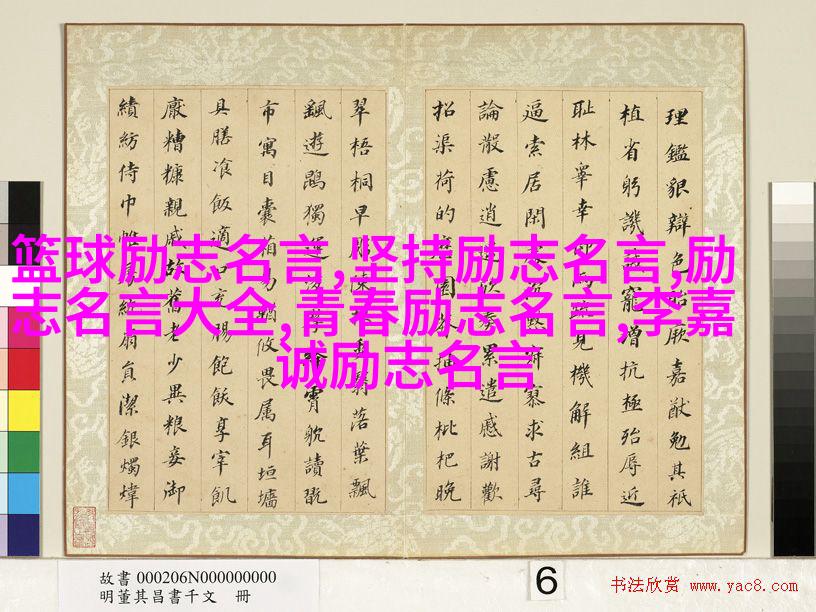 理鑑貌辯色貽厥嘉猷勉其祗
植省躬譏誡寵增抗極殆辱近
恥林睪幸即兩疏見機解組誰
逼索居閑處沉默寂寥求古尋
論散慮逍遙欣奏累遣慼謝歡
招渠荷的歷園莽抽條枇杷晚
翠梧桐早凋陳根委翳落葉飄
颻遊鵾獨運凌摩絳霄躭讀翫
市寓目囊箱易輶攸畏属耳垣墻
具膳飡飯適口充腸飽飫享宰飢
厭糟糠親戚故舊老少異粮妾御
績紡侍巾帷房紈扇員潔銀燭煒
篮球励志名言,坚持励志名言,励
志名言大全,青春励志名言,李嘉
诚励志名言
故書 000206N000000000
明董其昌書千文 冊
6
书法欣赏 www.yac8.com